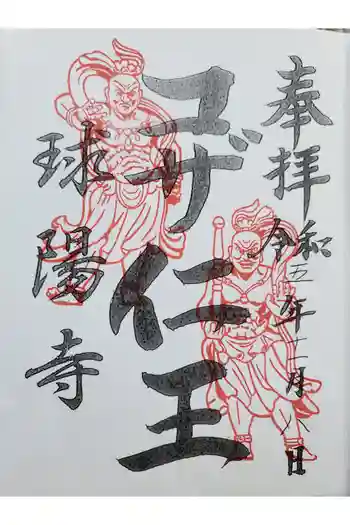 奉拝
令和五年十二月八日
コザ仁王
球陽寺